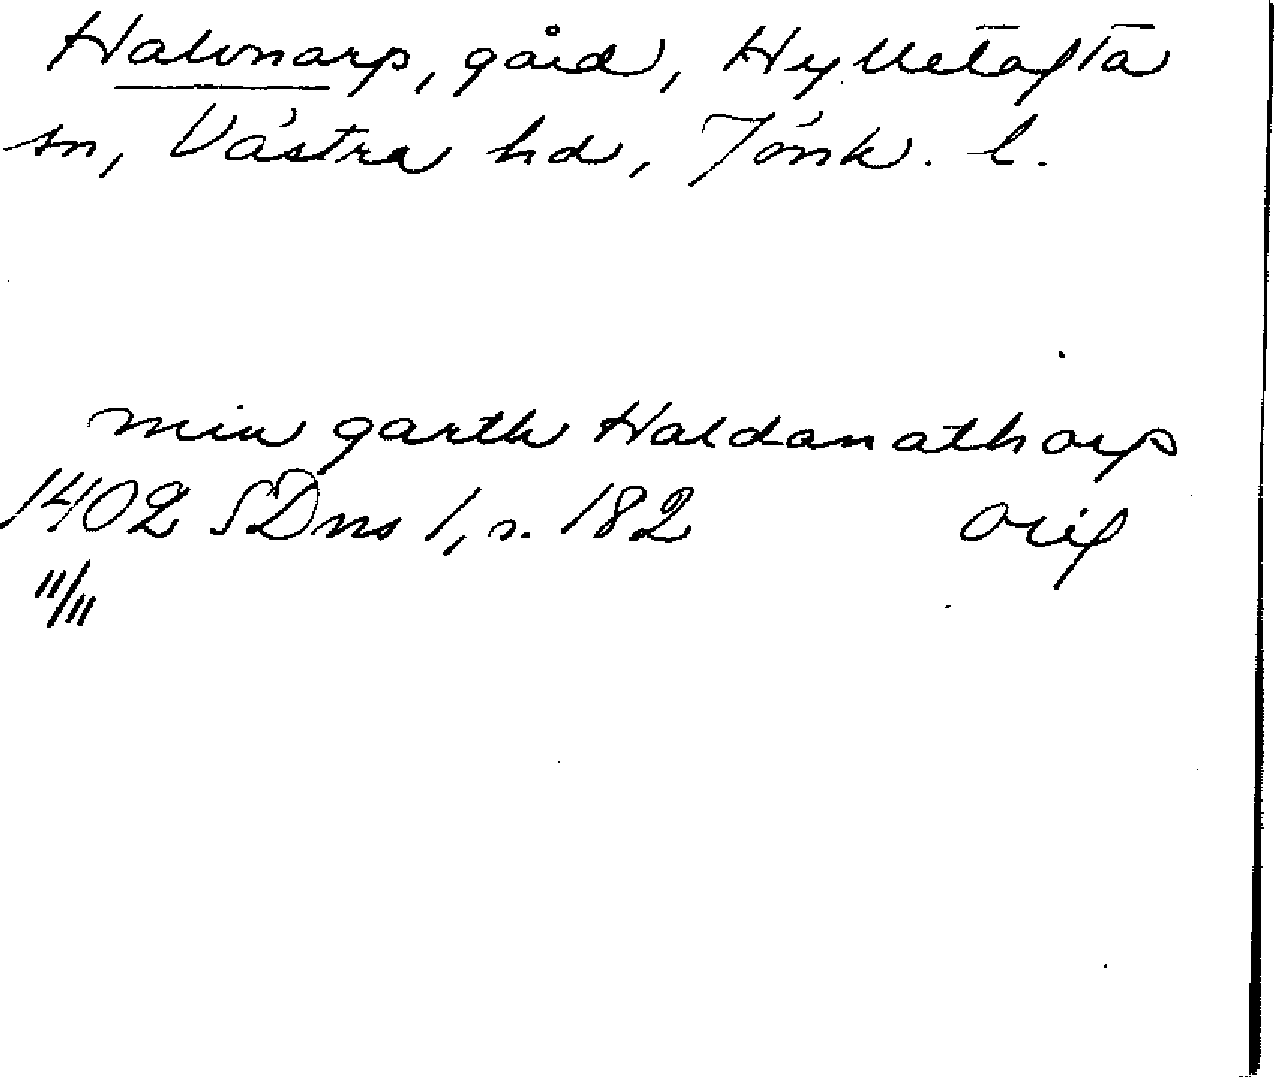 Halvnarp, gård, Hylletofta
sn, Västra hd, Jönk. l.
min garth Haldanathorp
1402 SDns 1, s. 182 orig
11/11